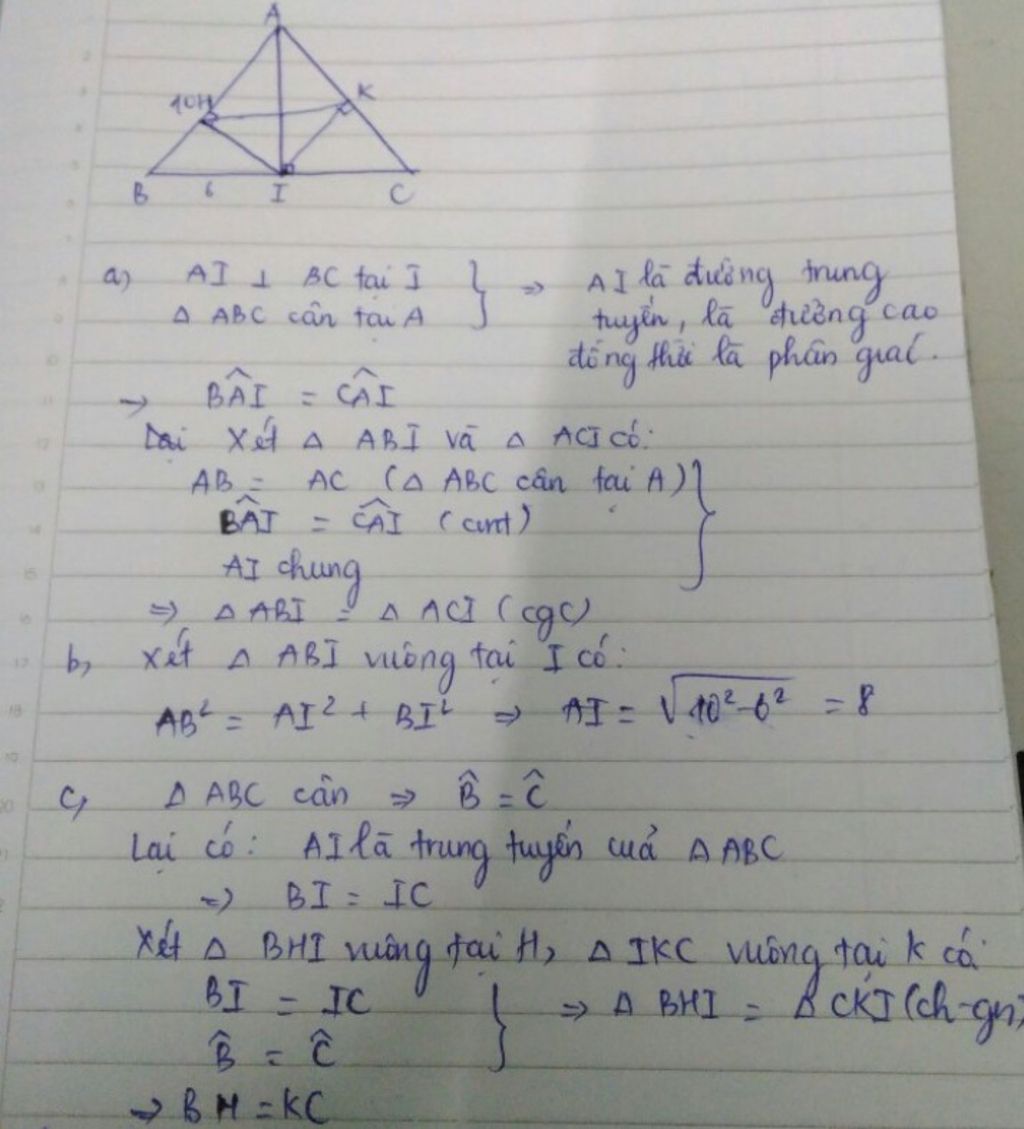 A
10 H K
B 6 I C
a) AI ⊥ BC tại I } ⇒ AI là đường trung
Δ ABC cân tại A tuyến, là đường cao
đồng thời là phân giác.
→ BÂI = CÂI
Xét Δ ABI và Δ ACI có:
AB = AC (Δ ABC cân tại A) }
BÂI = CÂI (cmt)
AI chung
⇒ Δ ABI = Δ ACI (cgc)
b, Xét Δ ABI vuông tại I có:
AB² = AI² + BI² ⇒ AI = √10²-6² = 8
c, Δ ABC cân ⇒ B̂ = Ĉ
Lại có: AI là trung tuyến của Δ ABC
⇒ BI = IC
Xét Δ BHI vuông tại H, Δ IKC vuông tại K có
BI = IC } ⇒ Δ BHI = Δ CKI (ch-gn)
B̂ = Ĉ
→ BH = KC